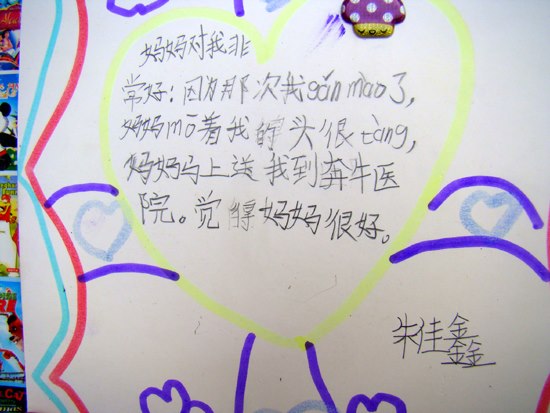 妈妈对我非
常好：因为那次我gǎn mào了，
妈妈mō着我的头很tàng，
妈妈马上送我到奔牛医
院。觉得妈妈很好。
朱佳鑫